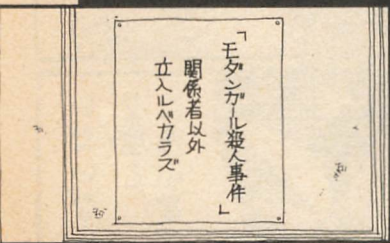 「モダンガール殺人事件」
関係者以外
立入ルベカラズ